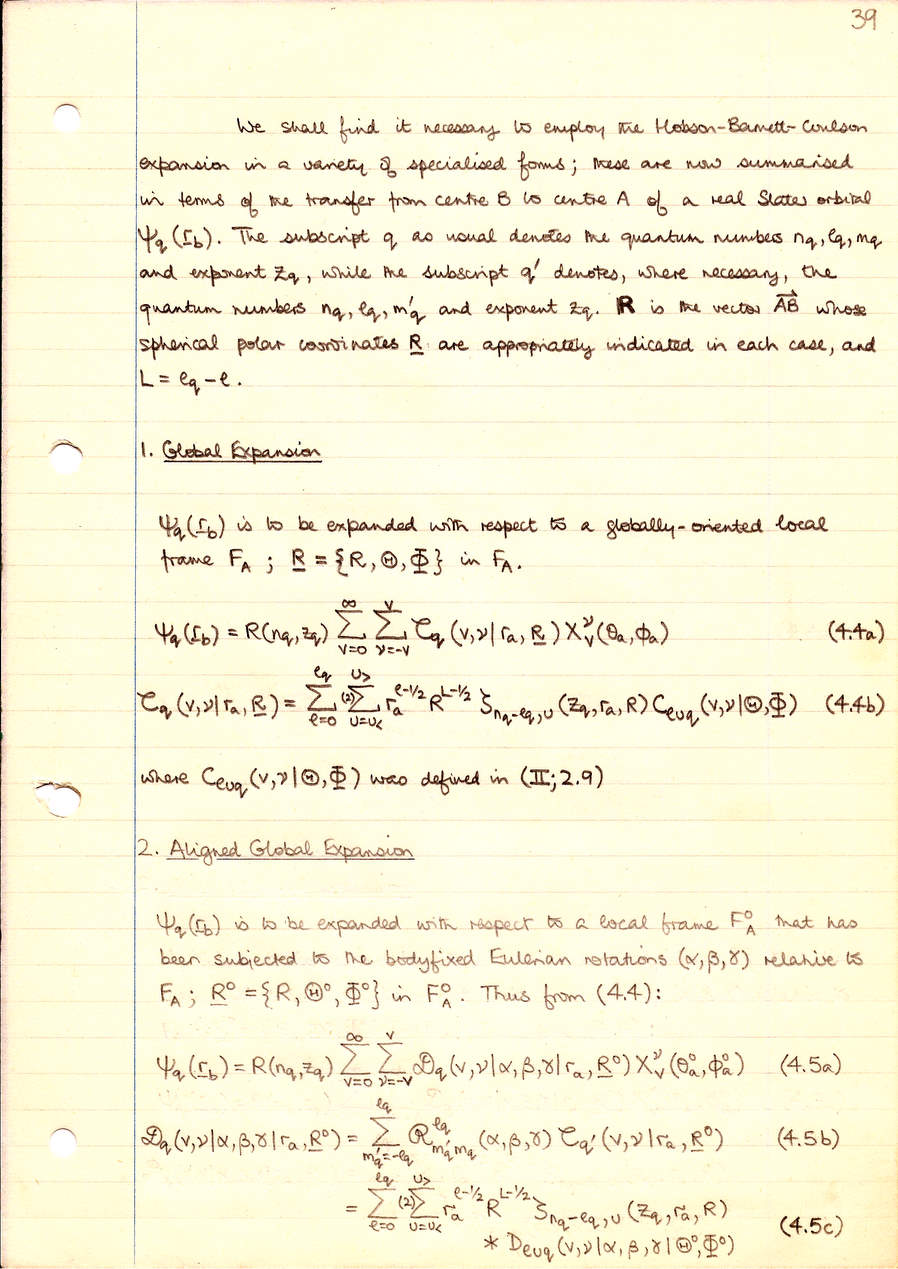 39
We shall find it necessary to employ the Hobson-Barnett-Coulson
expansion in a variety of specialised forms; these are now summarised
in terms of the transfer from centre B to centre A of a real Slater orbital
Ψq(r̲b). The subscript q as usual denotes the quantum numbers nq, lq, mq
and exponent zq, while the subscript q' denotes, where necessary, the
quantum numbers nq, lq, m'q and exponent zq. R is the vector AB⃗ whose
spherical polar coordinates R̲ are appropriately indicated in each case, and
L = lq - l.
1. Global Expansion
Ψq(r̲b) is to be expanded with respect to a globally-oriented local
frame FA; R̲ = {R, Θ, Φ} in FA.
Ψq(r̲b) = R(nq,zq) ∑_{v=0}^{∞} ∑_{ν=-v}^{v} 𝒞q(v,ν|ra,R̲) X_v^ν(θa,φa) (4.4a)
𝒞q(v,ν|ra,R̲) = ∑_{l=0}^{lq} (2)∑_{u=u<}^{u>} ra^{l-1/2} R^{L-1/2} ζ_{nq-lq,u}(zq,ra,R) C_{luq}(v,ν|Θ,Φ) (4.4b)
where C_{luq}(v,ν|Θ,Φ) was defined in (II;2.9)
2. Aligned Global Expansion
Ψq(r̲b) is to be expanded with respect to a local frame F°A that has
been subjected to the bodyfixed Eulerian rotations (α,β,γ) relative to
FA; R̲° = {R, Θ°, Φ°} in F°A. Thus from (4.4):
Ψq(r̲b) = R(nq,zq) ∑_{v=0}^{∞} ∑_{ν=-v}^{v} 𝒟q(v,ν|α,β,γ|ra,R̲°) X_v^ν(θ°a,φ°a) (4.5a)
𝒟q(v,ν|α,β,γ|ra,R̲°) = ∑_{m'q=-lq}^{lq} ℛ^{lq}_{m'q mq}(α,β,γ) 𝒞q'(v,ν|ra,R̲°) (4.5b)
= ∑_{l=0}^{lq} (2)∑_{u=u<}^{u>} ra^{l-1/2} R^{L-1/2} ζ_{nq-lq,u}(zq,ra,R)
* D_{luq}(v,ν|α,β,γ|Θ°,Φ°) (4.5c)